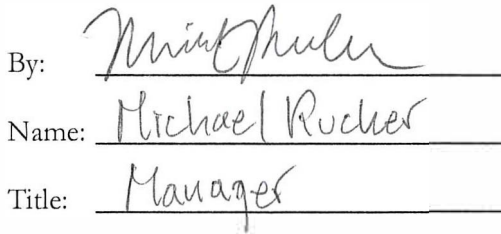 By:
Name: Michael Rucker
Title: Manager